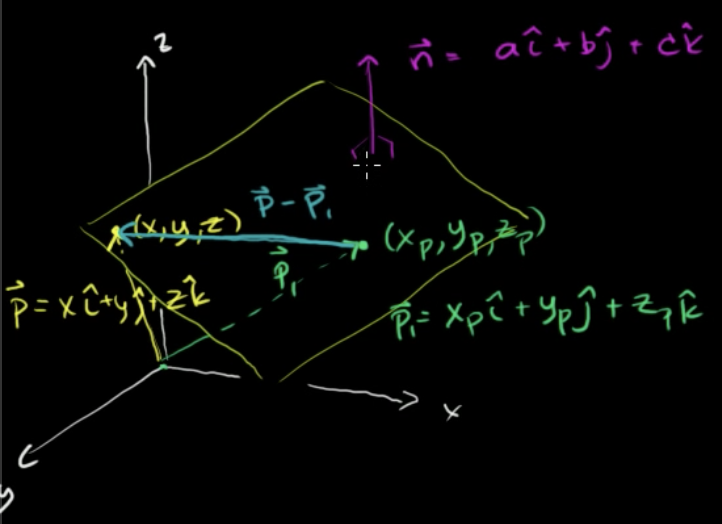 z
n⃗ = aî + bĵ + ck̂
p⃗ - p⃗₁
(x, y, z)
(xₚ, yₚ, zₚ)
p⃗₁
p⃗ = xî + yĵ + zk̂
p⃗₁ = xₚî + yₚĵ + zₚk̂
x
y